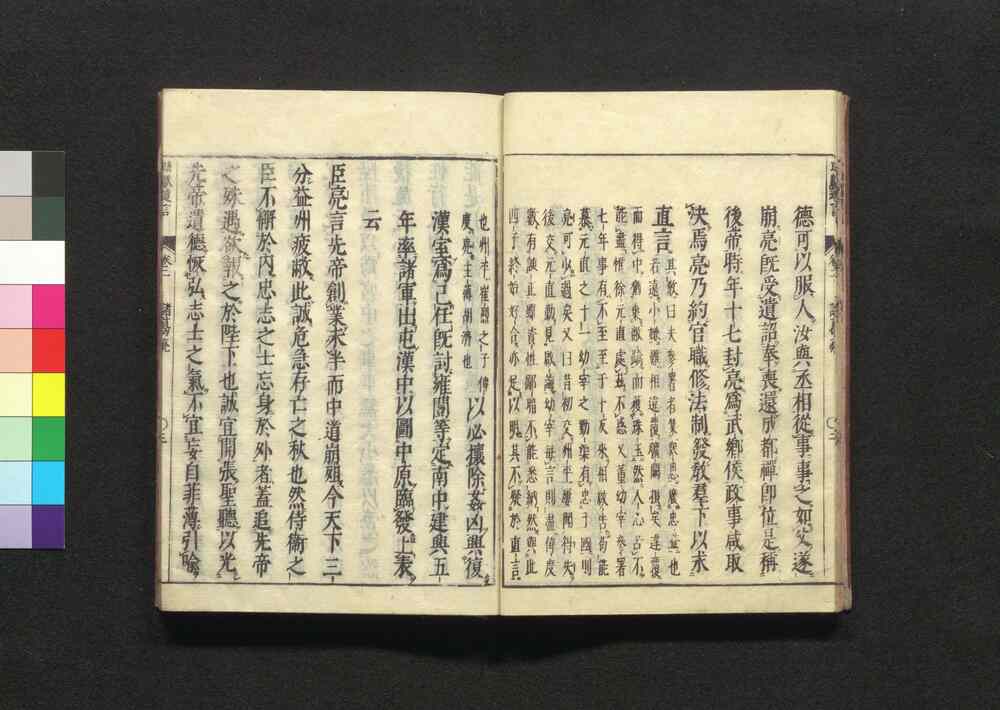 德可以服人汝與丞相從事事之如父遂
崩亮既受遺詔奉喪還成都禪即位是稱
後帝時年十七封亮爲武鄉侯政事咸取
決焉亮乃約官職修法制發教羣下以求
直言
其教曰夫參署者集衆思廣忠益也
若遠小嫌難相違覆曠闕損矣違覆
而得中猶棄敝蹻而獲珠玉然人心苦不
能盡惟徐元直處茲不惑又董幼宰參署
七年事有不至至于十反來相啟告苟能
慕元直之十一幼宰之勤渠有忠于國則
亮可少過矣又曰昔初交州平屢聞得失
後交元直勤見啟誨幼宰每言則盡偉度
數有諫止雖資性鄙暗不能悉納然與此
四子終始好合亦足以明其不疑於直言
也州平崔烈之子偉
度亮主簿胡濟也
以必攘除姦凶興復
漢室爲己任既討雍闓等定南中建興五
年率諸軍出屯漢中以圖中原臨發上表
云
臣亮言先帝創業未半而中道崩殂今天下三
分益州疲敝此誠危急存亡之秋也然侍衛之
臣不懈於內忠志之士忘身於外者蓋追先帝
之殊遇欲報之於陛下也誠宜開張聖聽以光
先帝遺德恢弘志士之氣不宜妄自菲薄引喻
卷二
諸葛亮